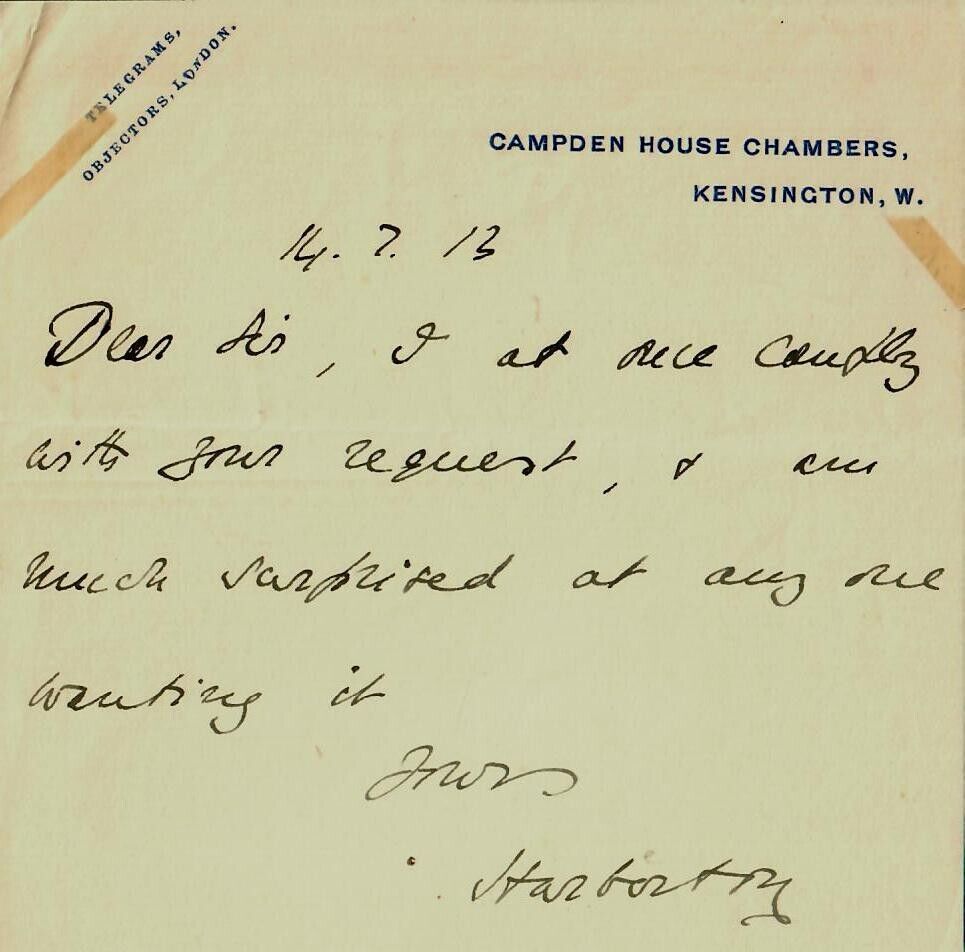 TELEGRAMS,
OBJECTORS, LONDON.
CAMPDEN HOUSE CHAMBERS,
KENSINGTON, W.
14. 7. 13
Dear Sir, I at once comply
with your request, & am
much surprised at any one
wanting it
Yours
Harberton